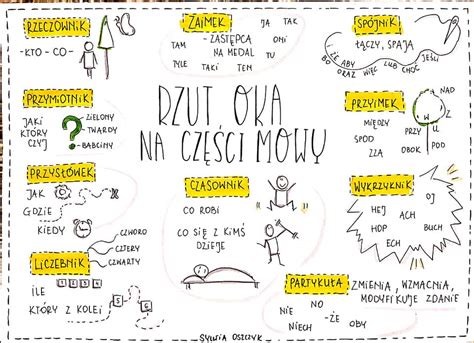 RZECZOWNIK
- KTO - CO -
ZAIMEK
JA TAK
TAM - ZASTĘPCA ONI
NA MEDAL TU
TYLE TAKI TEN
SPÓJNIK
ŁĄCZY, SPAJA
I ŻE ABY JEŚLI
BO ORAZ WIĘC LUB CHOĆ
PRZYMIOTNIK
JAKI
KTÓRY
CZYJ
?
- ZIELONY
- TWARDY
- BABCINY
RZUT OKA
NA CZĘŚCI MOWY
PRZYIMEK
NAD
Z
MIĘDZY
W U
SPOD PRZY
ZZA OBOK POD
PRZYSŁÓWEK
JAK
GDZIE
KIEDY
CZASOWNIK
CO ROBI
CO SIĘ Z KIMŚ
DZIEJE
WYKRZYKNIK
HEJ ACH
HOP BUCH
ECH
LICZEBNIK
CZWORO
CZTERY
CZWARTY
ILE
1 2 3 4
KTÓRY Z KOLEI
5 6
PARTYKUŁA
ZMIENIA, WZMACNIA,
MODYFIKUJE ZDANIE
NIE NO
NIECH -ŻE OBY
SYLWIA OSZCZYK